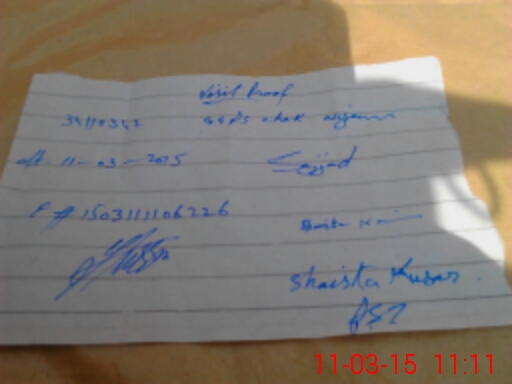 Visit Proof
34110342 GGPS chak
dt. 11-03-2015 Sajjad
F # 150311106226
Shaista Kusar
PST
11-03-15 11:11